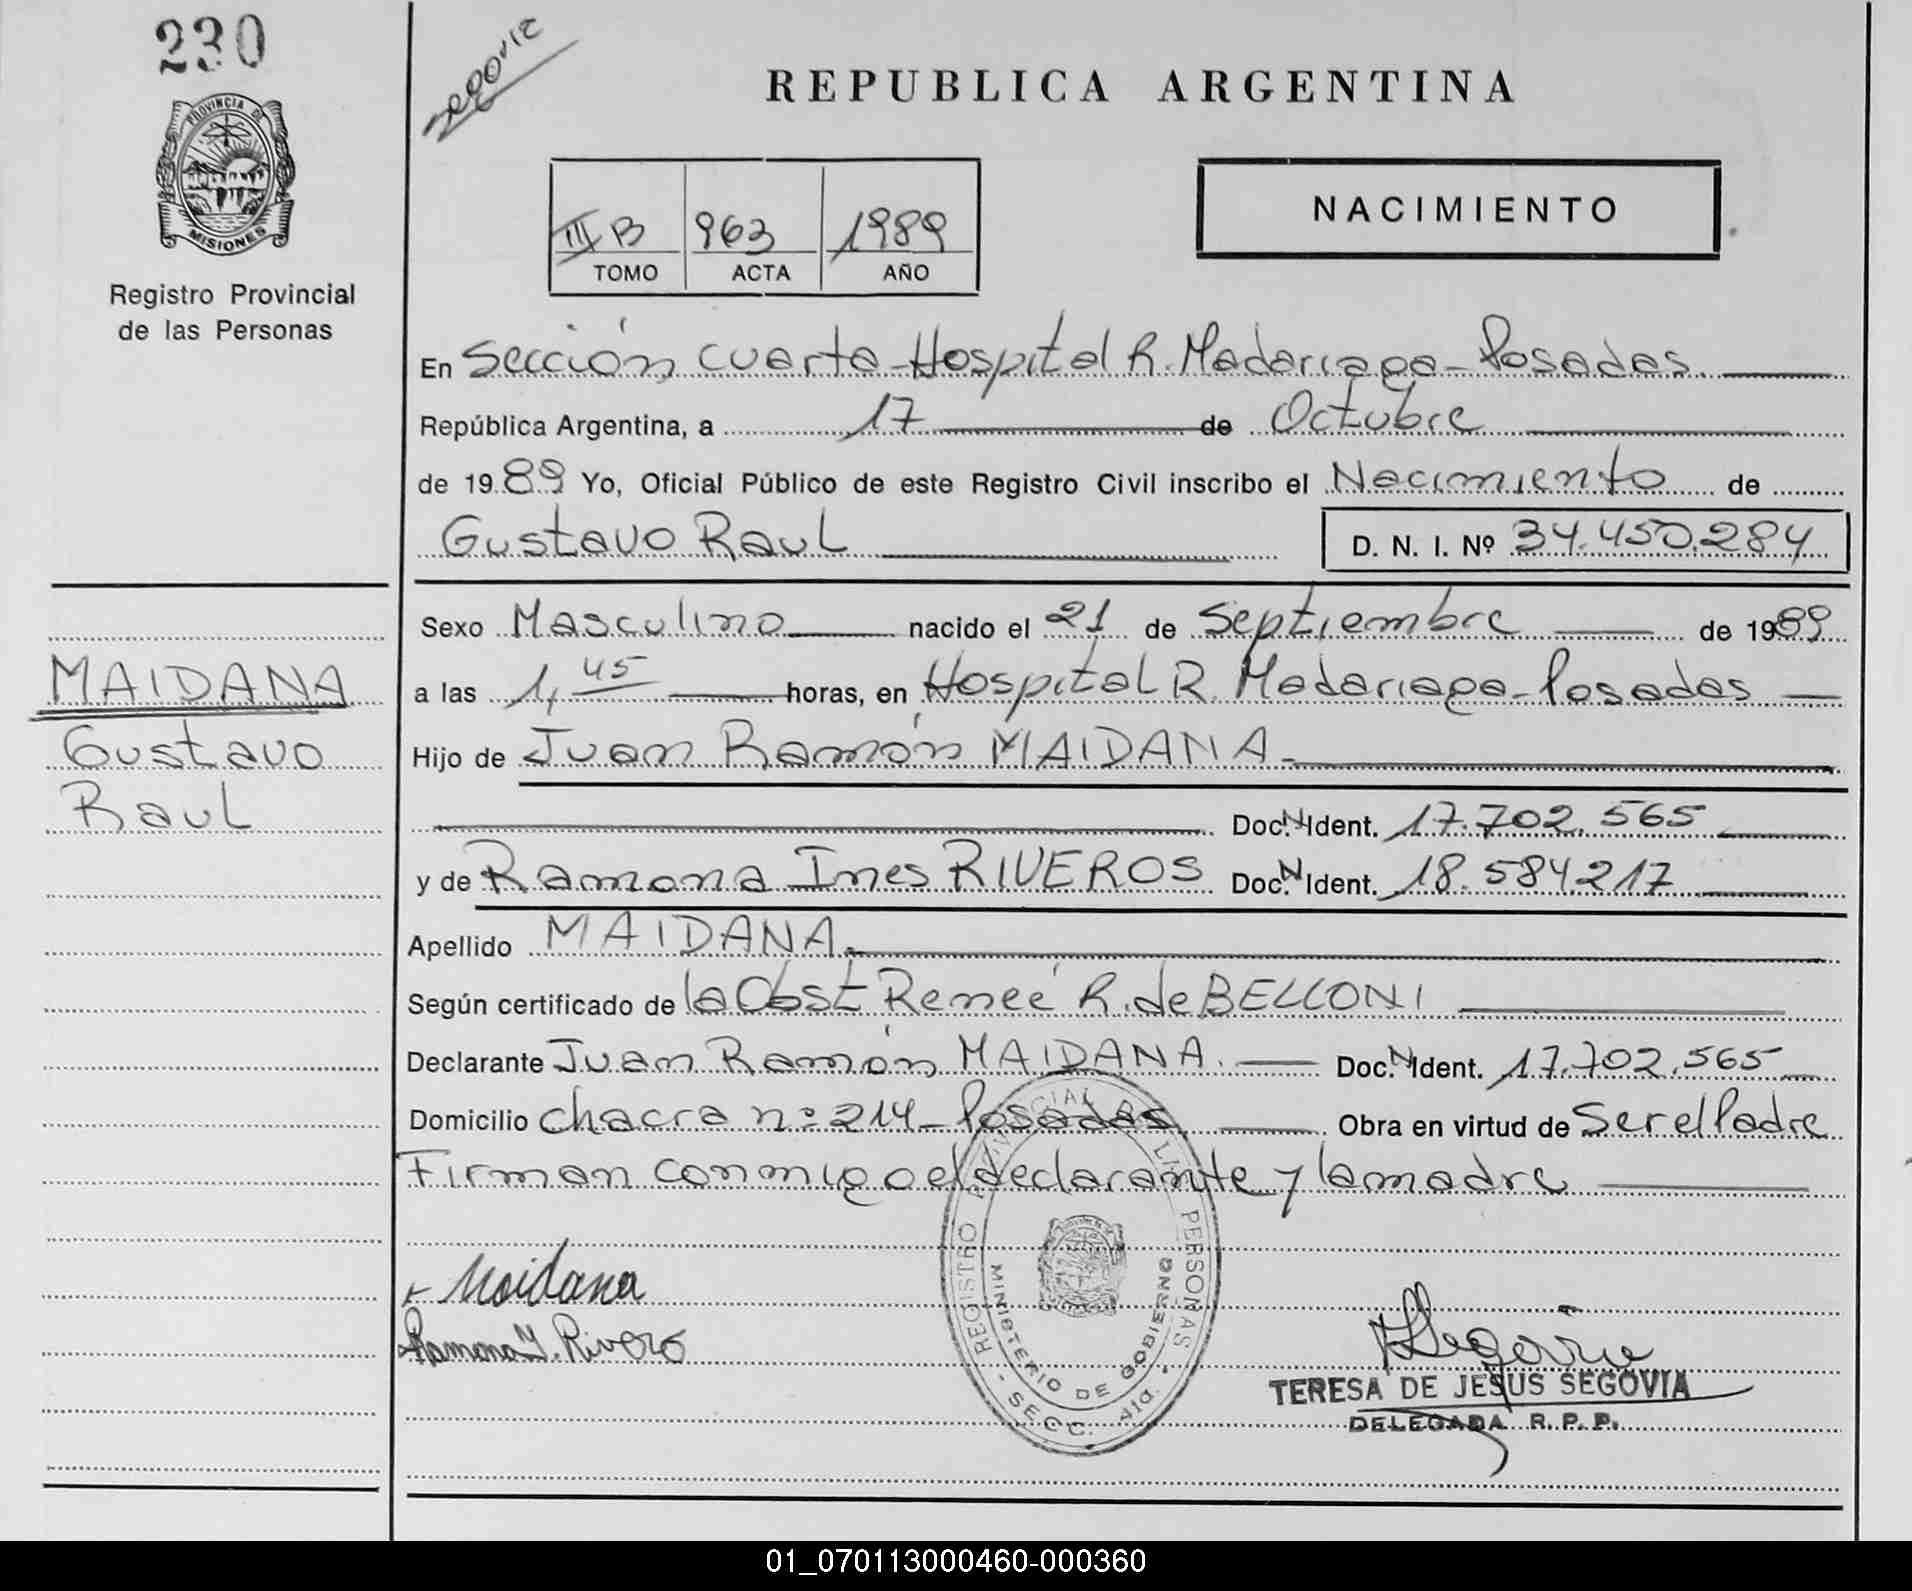 230
segovia
REPUBLICA ARGENTINA
PROVINCIA DE
MISIONES
Registro Provincial
de las Personas
III B 963 1989
TOMO ACTA AÑO
NACIMIENTO
En Sección cuarta - Hospital R. Madariaga - Posadas.
República Argentina, a 17 de Octubre
de 1989 Yo, Oficial Público de este Registro Civil inscribo el Nacimiento de
Gustavo Raul D. N. I. Nº 34.450.284
Sexo Masculino nacido el 21 de Septiembre de 1989
a las 1,45 horas, en Hospital R. Madariaga - Posadas
Hijo de Juan Ramón MAIDANA
Doc. N Ident. 17.702.565
y de Ramona Ines RIVEROS Doc. N Ident. 18.584217
Apellido MAIDANA.
Según certificado de la Obst Reneé R. de BELLONI
Declarante Juan Ramón MAIDANA. Doc. N Ident. 17.702.565
Domicilio chacra nº 214 - Posadas Obra en virtud de Ser el Padre
Firman conmigo el declarante y la madre
MAIDANA
Gustavo
Raul
Maidana
Ramona I. Rivero
REGISTRO PROVINCIAL DE LAS PERSONAS
MINISTERIO DE GOBIERNO
SECC. 4ta.
Segovia
TERESA DE JESUS SEGOVIA
DELEGADA R. P. P.
01_070113000460-000360